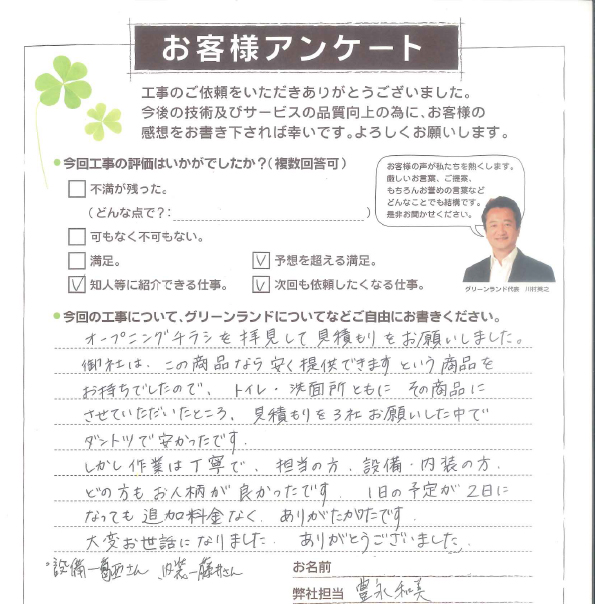 お客様アンケート
工事のご依頼をいただきありがとうございました。
今後の技術及びサービスの品質向上の為に、お客様の
感想をお書き下されば幸いです。よろしくお願いします。
●今回工事の評価はいかがでしたか?(複数回答可)
不満が残った。
(どんな点で?: )
可もなく不可もない。
満足。
予想を超える満足。
知人等に紹介できる仕事。
次回も依頼したくなる仕事。
お客様の声が私たちを熱くします。
厳しいお言葉、ご提案、
もちろんお誉めの言葉など
どんなことでも結構です。
是非お聞かせください。
グリーンランド代表 川村英之
●今回の工事について、グリーンランドについてなどご自由にお書きください。
オープニングチラシを拝見して見積もりをお願いしました。
御社は、この商品なら安く提供できますという商品を
お持ちでしたので、トイレ・洗面所ともにその商品に
させていただいたところ、見積もりを3社お願いした中で
ダントツで安かったです。
しかし作業は丁寧で、担当の方、設備・内装の方、
どの方もお人柄が良かったです。1日の予定が2日に
なっても追加料金なく、ありがたかたです。
大変お世話になりました。ありがとうございました。
設備―葛西さん 内装―藤井さん
お名前
弊社担当 豊永和美